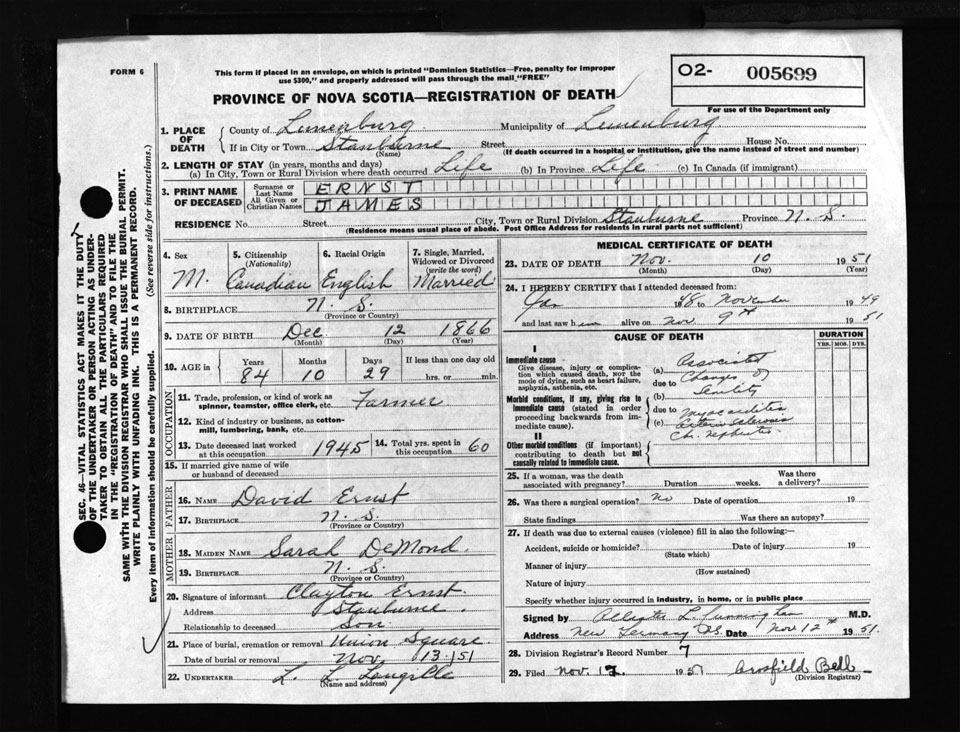 FORM 6
This form if placed in an envelope, on which is printed "Dominion Statistics—Free, penalty for improper
use $300," and properly addressed will pass through the mail "FREE"
O2- 005699
For use of the Department only
PROVINCE OF NOVA SCOTIA—REGISTRATION OF DEATH
1. PLACE OF DEATH
County of Lunenburg Municipality of Lunenburg
If in City or Town Stanburne Street House No.
(Name) (If death occurred in a hospital or institution, give the name instead of street and number)
2. LENGTH OF STAY (in years, months and days)
(a) In City, Town or Rural Division where death occurred Life (b) In Province Life (c) In Canada (if immigrant)
3. PRINT NAME OF DECEASED
Surname or Last Name ERNST
All Given or Christian Names JAMES
RESIDENCE No. Street City, Town or Rural Division Stanburne Province N. S.
(Residence means usual place of abode. Post Office Address for residents in rural parts not sufficient)
4. Sex M.
5. Citizenship (Nationality) Canadian
6. Racial Origin English
7. Single, Married, Widowed or Divorced (write the word) Married
8. BIRTHPLACE N. S.
(Province or Country)
9. DATE OF BIRTH Dec. 12 1866
(Month) (Day) (Year)
10. AGE in Years 84 Months 10 Days 29 If less than one day old hrs. or min.
OCCUPATION
11. Trade, profession, or kind of work as spinner, teamster, office clerk, etc. Farmer
12. Kind of industry or business, as cotton-mill, lumbering, bank, etc.
13. Date deceased last worked at this occupation 1945 14. Total yrs. spent in this occupation 60
15. If married give name of wife or husband of deceased
FATHER
16. NAME David Ernst
17. BIRTHPLACE N. S.
(Province or Country)
MOTHER
18. MAIDEN NAME Sarah DeMond
19. BIRTHPLACE N. S.
(Province or Country)
20. Signature of informant Clayton Ernst.
Address Stanburne.
Relationship to deceased Son.
21. Place of burial, cremation or removal Union Square.
Date of burial or removal Nov. 13 1951
22. UNDERTAKER L. L. Langille
(Name and address)
MEDICAL CERTIFICATE OF DEATH
23. DATE OF DEATH Nov. 10 1951
(Month) (Day) (Year)
24. I HEREBY CERTIFY that I attended deceased from:
Jan 1948 to November 1949
and last saw him alive on Nov 9th 1951
CAUSE OF DEATH
DURATION
YRS. MOS. DYS.
I
Immediate cause
Give disease, injury or complication which caused death, nor the mode of dying, such as heart failure, asphyxia, asthenia, etc.
(a) Associated
due to Changes of
(b) Senility
Morbid conditions, if any, giving rise to immediate cause (stated in order proceeding backwards from immediate cause).
due to Myocarditis
(c) Arteriosclerosis
Ch. Nephritis
II
Other morbid conditions (if important) contributing to death but not causally related to immediate cause.
25. If a woman, was the death associated with pregnancy? Duration weeks. Was there a delivery?
26. Was there a surgical operation? No Date of operation 19
State findings Was there an autopsy?
27. If death was due to external causes (violence) fill in also the following:
Accident, suicide or homicide? Date of injury 19
(State which)
Manner of injury
(How sustained)
Nature of injury
Specify whether injury occurred in industry, in home, or in public place
Signed by L. Cunningham M.D.
Address New Germany N.S. Date Nov 12th 1951.
28. Division Registrar's Record Number 7
29. Filed Nov. 12 1951 Crosfield Bell
(Division Registrar)
SEC. 46—VITAL STATISTICS ACT MAKES IT THE DUTY
OF THE UNDERTAKER OR PERSON ACTING AS UNDER-
TAKER TO OBTAIN ALL THE PARTICULARS REQUIRED
IN THE "REGISTRATION OF DEATH" AND TO FILE THE
SAME WITH THE DIVISION REGISTRAR WHO SHALL ISSUE THE BURIAL PERMIT.
WRITE PLAINLY WITH UNFADING INK. THIS IS A PERMANENT RECORD.
Every item of information should be carefully supplied. (See reverse side for instructions.)